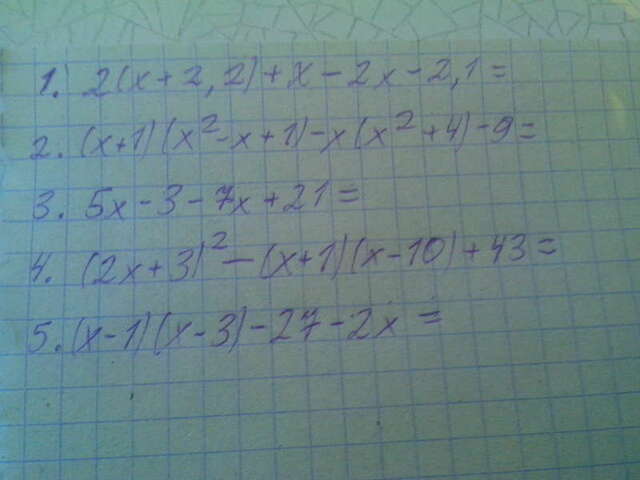 1. 2(x+2,2)+x-2x-2,1=
2. (x+1)(x²-x+1)-x(x²+4)-9=
3. 5x-3-7x+21=
4. (2x+3)²-(x+1)(x-10)+43=
5. (x-1)(x-3)-27-2x=